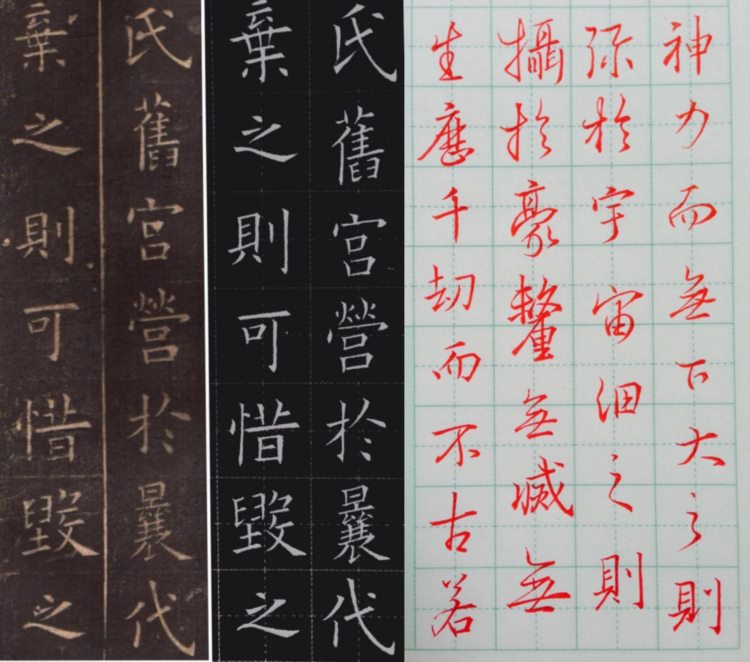 氏舊宮營於曩代
棄之則可惜毀之
氏舊宮營於曩代
棄之則可惜毀之
神力而無下大之則
弥於宇宙細之則
攝於豪釐無滅無
生歷千劫而不古若